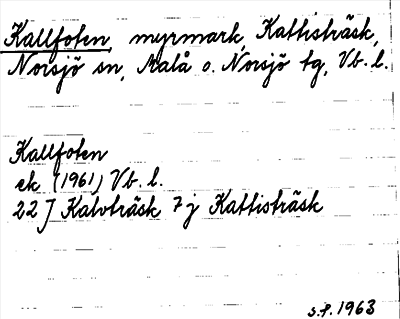 Kallfoten, myrmark, Kattisträsk,
Norsjö sn, Malå o. Norsjö tg, Vb. l.
Kallfoten
ek (1961) Vb. l.
22 J Kalvträsk 7 j Kattisträsk
S.P. 1963